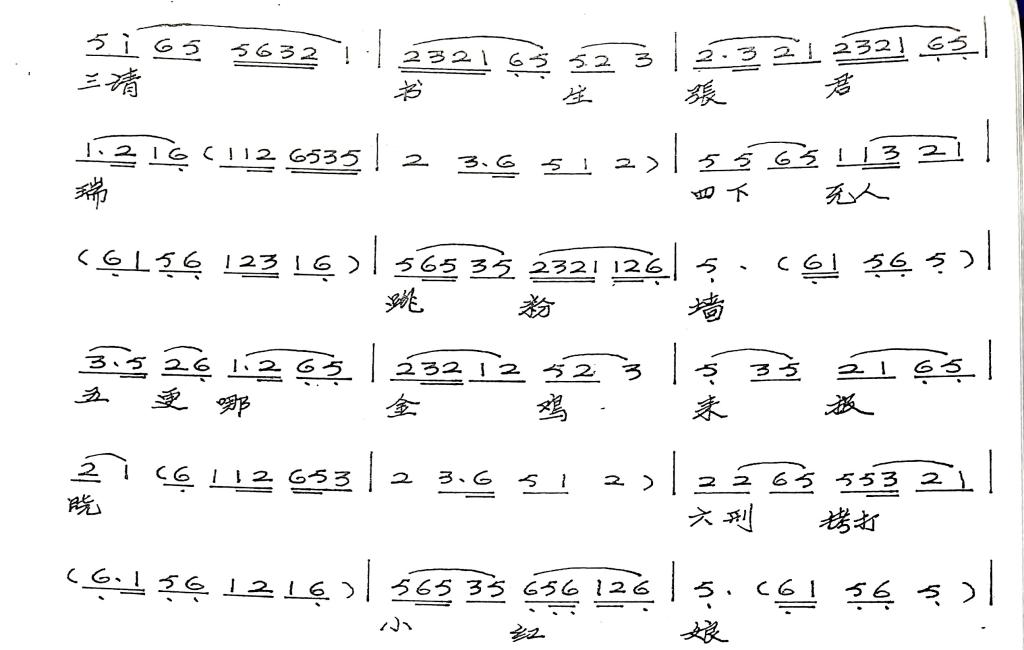 5 i 65 5632 1 · | 2321 65 52 3 | 2·3 21 2321 65 |
三请 书 生 張 君
1·2 16 (112 6535 | 2 3·6 51 2) | 55 65 113 21 |
瑞 四下 无人
(61 56 123 16) | 565 35 2321 126 | 5 · (61 56 5) |
跳 粉 墙
3·5 26 1·2 65 | 23212 52 3 | 5 35 21 65 |
五 更 哪 金 鸡 来 报
2 1 (6 112 653 | 2 3·6 51 2) | 22 65 553 21 |
晓 六刑 拷打
(6·1 56 12 16) | 565 35 656 126 | 5 · (61 56 5) |
小 红 娘